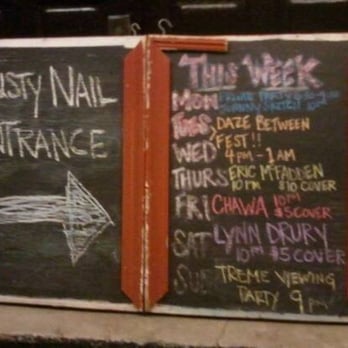 USTY NAIL
NTRANCE
THIS WEEK
MON PRIVATE PARTY
10PM
TUES DAZE BETWEEN
FEST!!
WED 4PM - 1AM
THURS ERIC MCFADDEN
10PM $10 COVER
FRI CHAWA 10PM
$5 COVER
SAT LYNN DRURY
10PM $5 COVER
SUN TREME VIEWING
PARTY 9PM